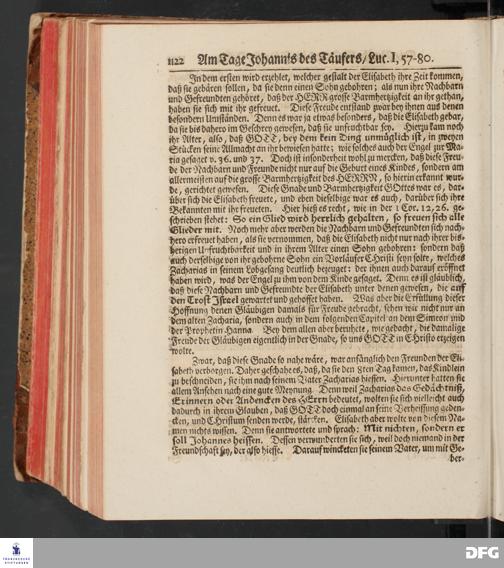 1122 Am Tage Johannis des Täufers/ Luc. I, 57-80.
In dem ersten wird erzehlet, welcher gestalt der Elisabeth ihre Zeit kommen,
daß sie gebären sollen, da sie denn einen Sohn gebohren; als nun ihre Nachbarn
und Gefreundten gehöret, daß der HERR grosse Barmhertzigkeit an ihr gethan,
haben sie sich mit ihr gefreuet. Diese Freude entstand zwar bey ihnen aus denen
besondern Umständen. Denn es war ja etwas besonders, daß die Elisabeth gebar,
da sie bis dahero im Geschrey gewesen, daß sie unfruchtbar sey. Hierzu kam noch
ihr Alter, also, daß GOTT, bey dem kein Ding unmöglich ist, in zweyen
Stücken seine Allmacht an ihr bewiesen hatte; wie solches auch der Engel zur Ma-
ria gesaget v. 36. und 37. Doch ist insonderheit wohl zu mercken, daß diese Freu-
de der Nachbarn und Freunde nicht nur auf die Geburt eines Kindes, sondern am
allermeisten auf die grosse Barmhertzigkeit des HERRN, so hierin erkannt wur-
de, gerichtet gewesen. Diese Gnade und Barmhertzigkeit GOttes war es, dar-
über sich die Elisabeth freuete, und eben dieselbige war es auch, darüber sich ihre
Bekannten mit ihr freueten. Hier hieß es recht, wie in der 1 Cor. 12, 26. ge-
schrieben stehet: So ein Glied wird herrlich gehalten, so freuen sich alle
Glieder mit. Noch mehr aber werden die Nachbarn und Gefreundten sich nach-
hero erfreuet haben, als sie vernommen, daß die Elisabeth nicht nur nach ihrer bis-
herigen Unfruchtbarkeit und in ihrem Alter einen Sohn gebohren: sondern daß
auch derselbige von ihr gebohrne Sohn ein Vorläufer Christi seyn solte, welches
Zacharias in seinem Lobgesang deutlich bezeuget: der ihnen auch darauf eröffnet
haben wird, was der Engel zu ihm von dem Kinde gesaget. Denn es ist glaublich,
daß diese Nachbarn und Gefreundte der Elisabeth unter denen gewesen, die auf
den Trost Israel gewartet und gehoffet haben. Was aber die Erfüllung dieser
Hoffnung denen Gläubigen damals für Freude gebracht, sehen wir nicht nur an
dem alten Zacharia, sondern auch in dem folgenden Capitel an dem Simeon und
der Prophetin Hanna. Bey dem allen aber beruhete, wie gedacht, die damalige
Freude der Gläubigen eigentlich in der Gnade, so uns GOTT in Christo erzeigen
wolte.
Zwar, daß diese Gnade so nahe wäre, war anfänglich den Freunden der Eli-
sabeth verborgen. Daher geschahe es, daß, da sie den 8ten Tag kamen, das Kindlein
zu beschneiden, sie ihn nach seinem Vater Zacharias hiessen. Hierunter hatten sie
allem Ansehen nach eine gute Meynung. Denn weil Zacharias das Gedächtniß,
Erinnern oder Andencken des HErrn bedeutet, wolten sie sich vielleicht auch
dadurch in ihrem Glauben, daß GOTT doch einmal an seine Verheissung geden-
cken, und Christum senden werde, stärcken. Elisabeth aber wolte von diesem Na-
men nichts wissen. Denn sie antwortete und sprach: Mit nichten, sondern er
soll Johannes heissen. Dessen verwunderten sie sich, weil doch niemand in der
Freundschaft sey, der also hiesse. Darauf wincketen sie seinem Vater, um mit Ge-
ber-
FRANCKESCHE
STIFTUNGEN
DFG